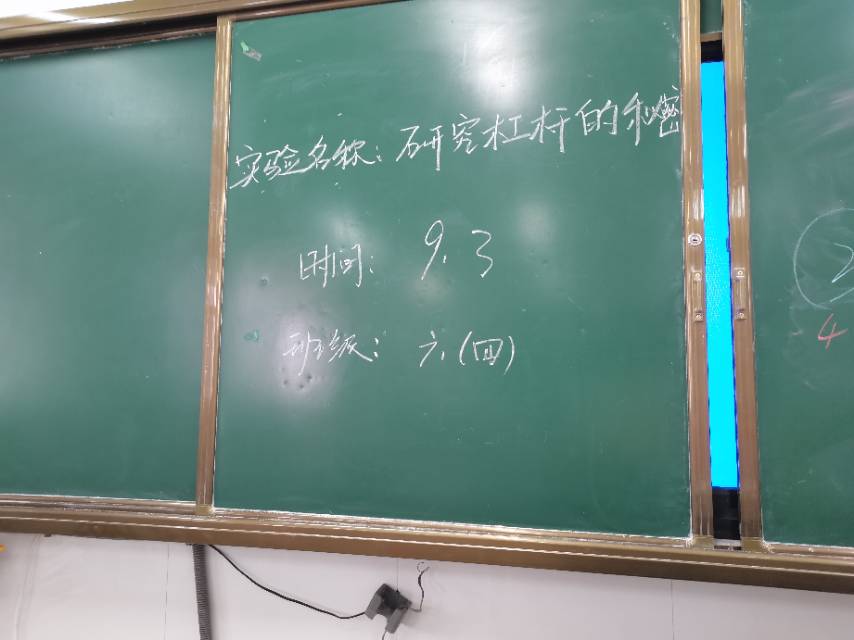 实验名称：研究杠杆的秘密
时间：9.3
班级：六.(四)
2
4